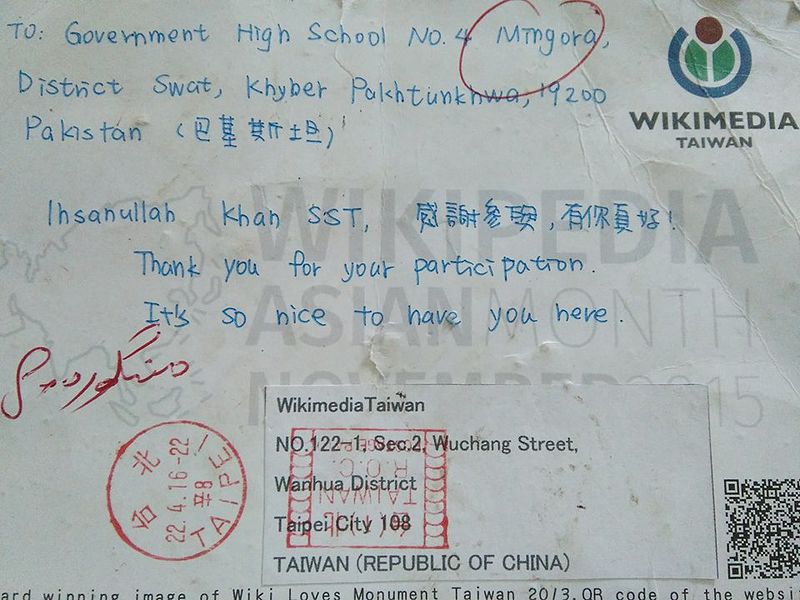 To: Government High School No.4 Mingora,
District Swat, Khyber Pakhtunkhwa, 19200
Pakistan (巴基斯坦)
WIKIMEDIA
TAIWAN
Ihsanullah Khan SST, 感謝參與,有你真好!
Thank you for your participation.
It's so nice to have you here.
WIKIPEDIA
ASIAN MONTH
NOVEMBER 2015
منگوره
台北
22.4.16-22
TAIPEI
WikimediaTaiwan
NO.122-1, Sec.2, Wuchang Street,
Wanhua District
Taipei City 108
TAIWAN (REPUBLIC OF CHINA)
R.O.C.
TAIWAN
ard winning image of Wiki Loves Monument Taiwan 20/3.QR code of the websi